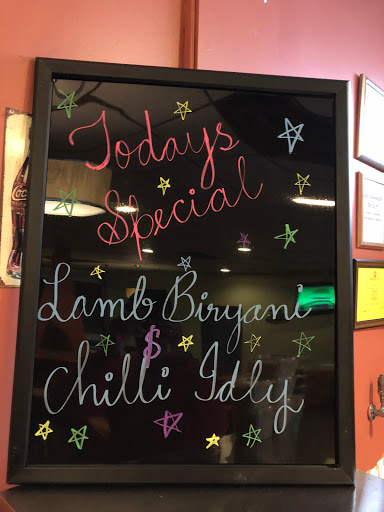 Todays
Special
Lamb Biryani
$
Chilli Idly